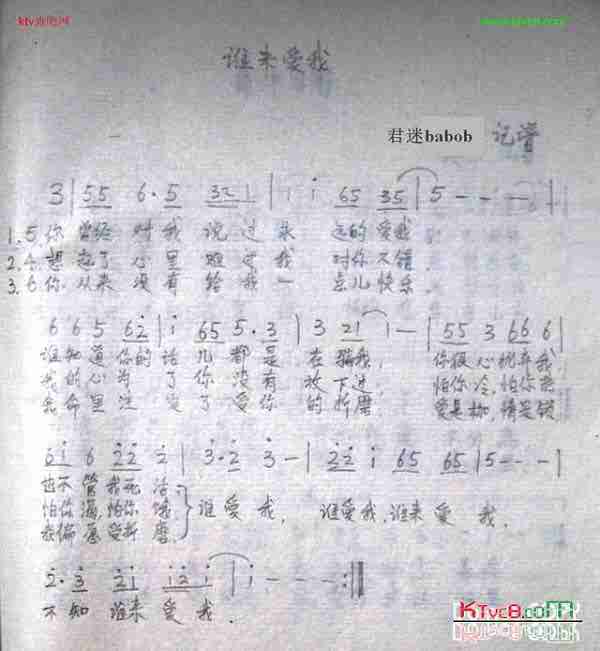 谁来爱我
君迷babob 记谱
3 | 55 6·5 321 | 1 i 65 35 | 5 - - - |
1.5 你曾经对我说过永远的爱我
2.4 想起了心里 过我对你不错
3.6 你从来没有给我一点儿快乐
6 6 5 62 | i 65 5·3 | 3 21 i - | 55 3 66 6 |
谁知道你的话儿都是在骗我, 你很心抛弃我,
我的心为了你没有放下过, 怕你冷,怕你热
我命里注定了受你的折磨 爱是枷,情是锁
61 6 22 2 | 3·2 3 - | 22 i 65 65 | 5 - - |
也不管我死活
怕你渴,怕你饿 } 谁爱我, 谁爱我,谁来爱我.
我偏愿受折磨
2·3 21 i2 i | i - - - :||
不知谁来爱我.
KTvC8.com